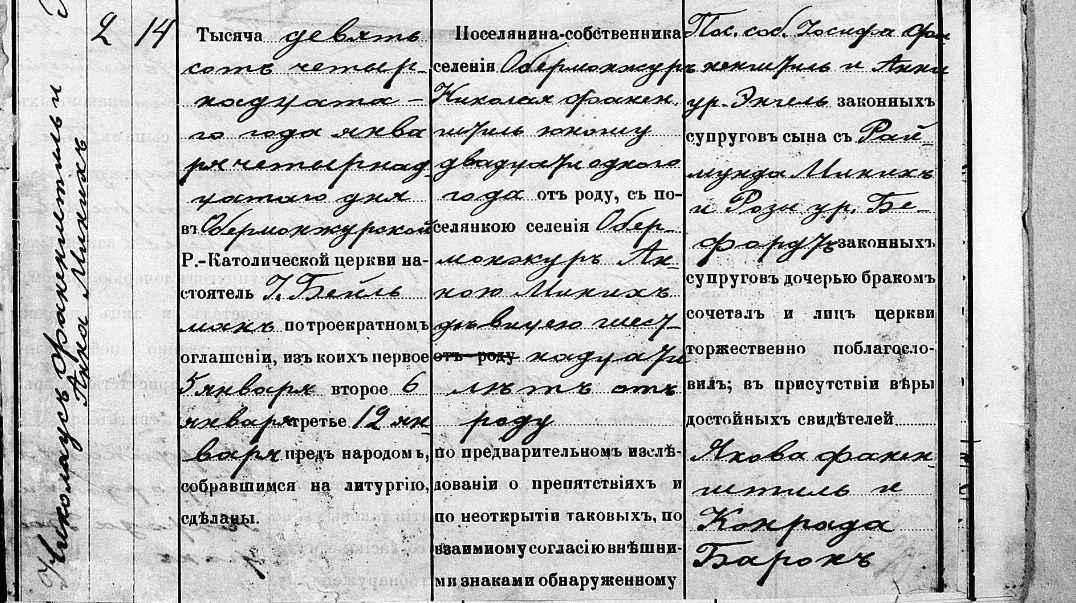 2
14
Николаусъ Факенштиль и
Анна Минихъ
Тысяча девять
сотъ четыр-
надцата-
го года янва
ря четырнад
цатаго дня
въ Обермонжурской
Р.-Католической церкви на-
стоятель І. Бейль
манъ по троекратномъ
оглашеніи, изъ коихъ первое
5 января второе 6
января третье 12 ян
варя предъ народомъ,
собравшимся на литургію,
сдѣланы.
Поселянина-собственника
селенія Обермонжуръ
Николая Факен
штиль юношу
двадцати одного
года отъ роду, съ по-
селянкою селенія Обер-
монжуръ Ан-
ною Минихъ
дѣвицею шест-
отъ роду надцати
лѣтъ отъ
роду
по предварительномъ изслѣ-
дованіи о препятствіяхъ и
по неоткрытіи таковыхъ, по
взаимному согласію внѣшни-
ми знаками обнаруженному
Пос. соб. Іосифа Фа
кенштиль и Анны
ур. Энгель законныхъ
супруговъ сына съ Рай-
мунда Минихъ
и Розы ур. Бе-
фордтъ законныхъ
супруговъ дочерью бракомъ
сочеталъ и лицъ церкви
торжественно поблагосло-
вилъ; въ присутствіи вѣры
достойныхъ свидѣтелей
Якова Факен
штиль и
Конрада
Баронъ